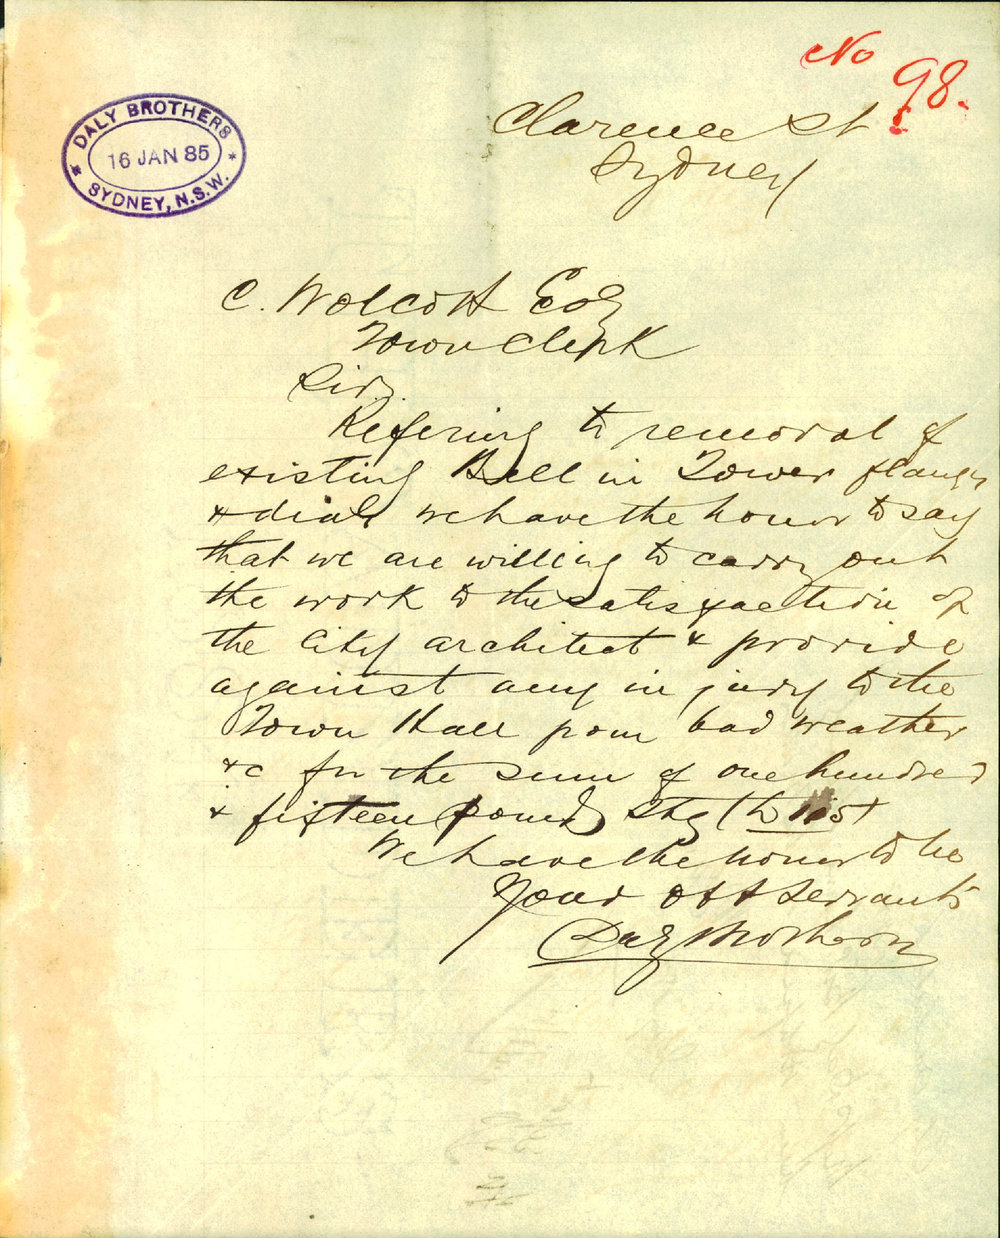 No 98.
DALY BROTHERS
16 JAN 85
SYDNEY, N.S.W.
Clarence St
Sydney
C. Wolcott Esq
Town Clerk
Sir
Refering to removal of
existing Bell in Tower
& dials we have the honor to say
that we are willing to carry out
the work to the satisfaction of
the City architect & provide
against any injury to the
Town Hall from bad weather
&c for the sum of one hundred
& fifteen pounds Stg (
We have the honor to be
Your Obt Servants
Daly Brothers